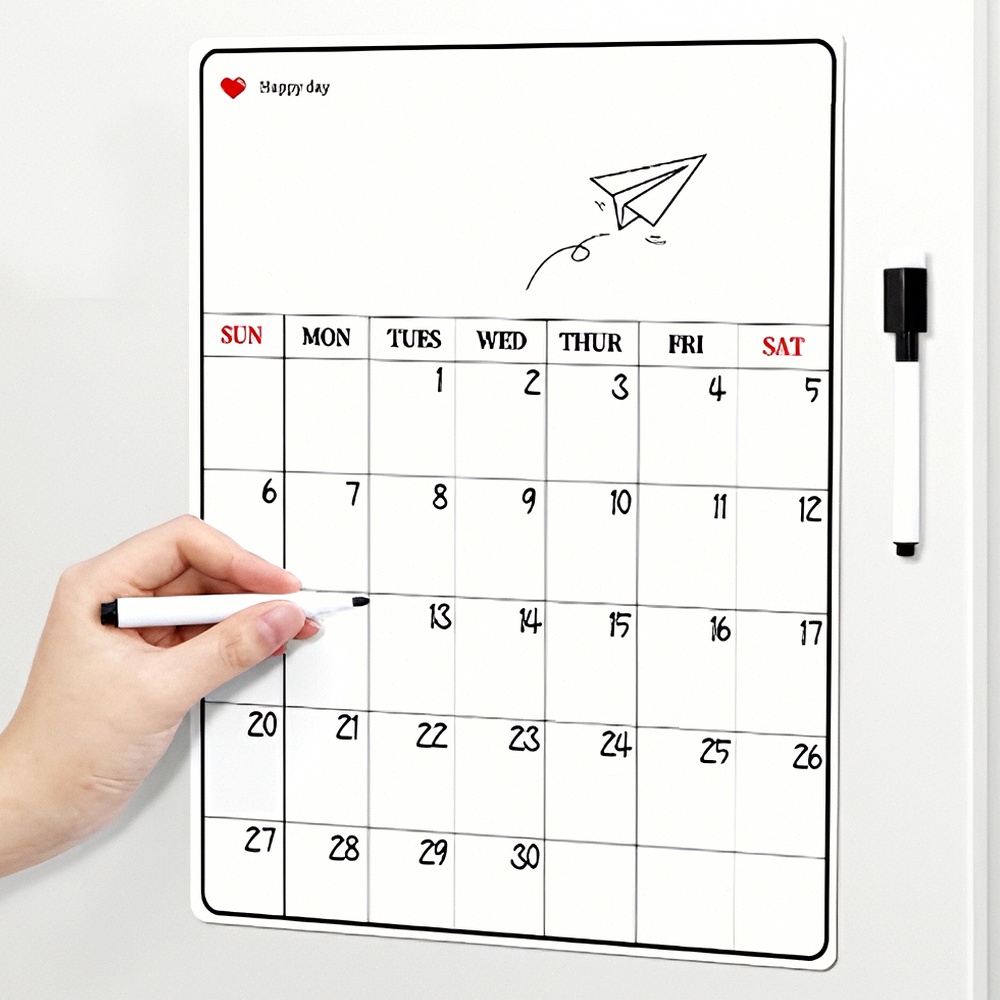 Happy day
SUN MON TUES WED THUR FRI SAT
1 2 3 4 5
6 7 8 9 10 11 12
13 14 15 16 17
20 21 22 23 24 25 26
27 28 29 30